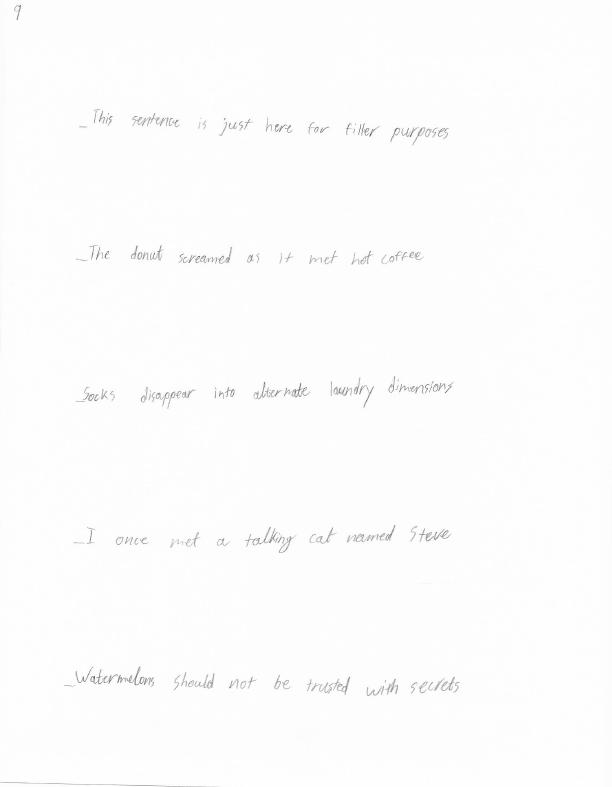 9
_This sentence is just here for filler purposes
_The donut screamed as it met hot coffee
_Socks disappear into alternate laundry dimensions
_I once met a talking cat named Steve
_Watermelons should not be trusted with secrets